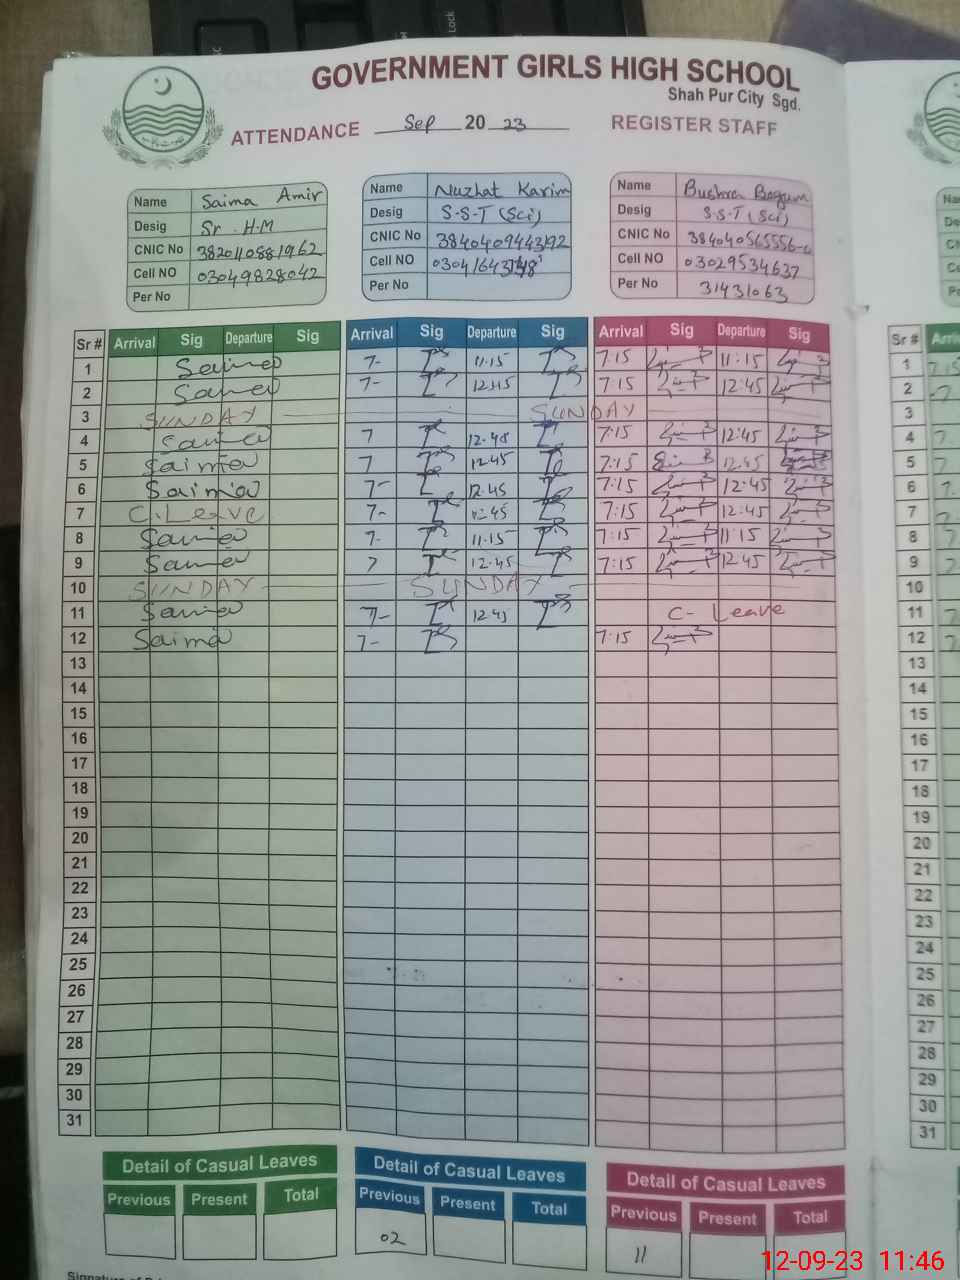 Lock
GOVERNMENT GIRLS HIGH SCHOOL
Shah Pur City Sgd.
ATTENDANCE Sep 20 23 REGISTER STAFF
Name Saima Amir Name Nuzhat Karim Name Bushra Begum
Desig Sr. H.M Desig S.S.T (Sci) Desig S.S.T (Sci)
CNIC No 3820110881962 CNIC No 3840409443192 CNIC No 384040565556-0
Cell NO 03049828042 Cell NO Cell NO 03029534637
Per No Per No Per No 31431063
Sr # Arrival Sig Departure Sig Arrival Sig Departure Sig Arrival Sig Departure Sig Sr #
1 Saima 7- 11.15 7:15 11:15 1
2 Saima 7- 12.45 7:15 12:45 2
3 SUNDAY SUNDAY 3
4 Saima 7 12.45 7:15 12:45 4
5 Saima 7 12.45 7:15 12.45 5
6 Saima 7- 12.45 7:15 12:45 6
7 C.Leave 7- 12.45 7:15 12:45 7
8 Saima 7- 11.15 7:15 11:15 8
9 Saima 7 12.45 7:15 12:45 9
10 SUNDAY SUNDAY 10
11 Saima 7- 12.45 C- Leave 11
12 Saima 7- 7:15 12
13 13
14 14
15 15
16 16
17 17
18 18
19 19
20 20
21 21
22 22
23 23
24 24
25 25
26 26
27 27
28 28
29 29
30 30
31 31
Detail of Casual Leaves Detail of Casual Leaves Detail of Casual Leaves
Previous Present Total Previous Present Total Previous Present Total
02 11
12-09-23 11:46